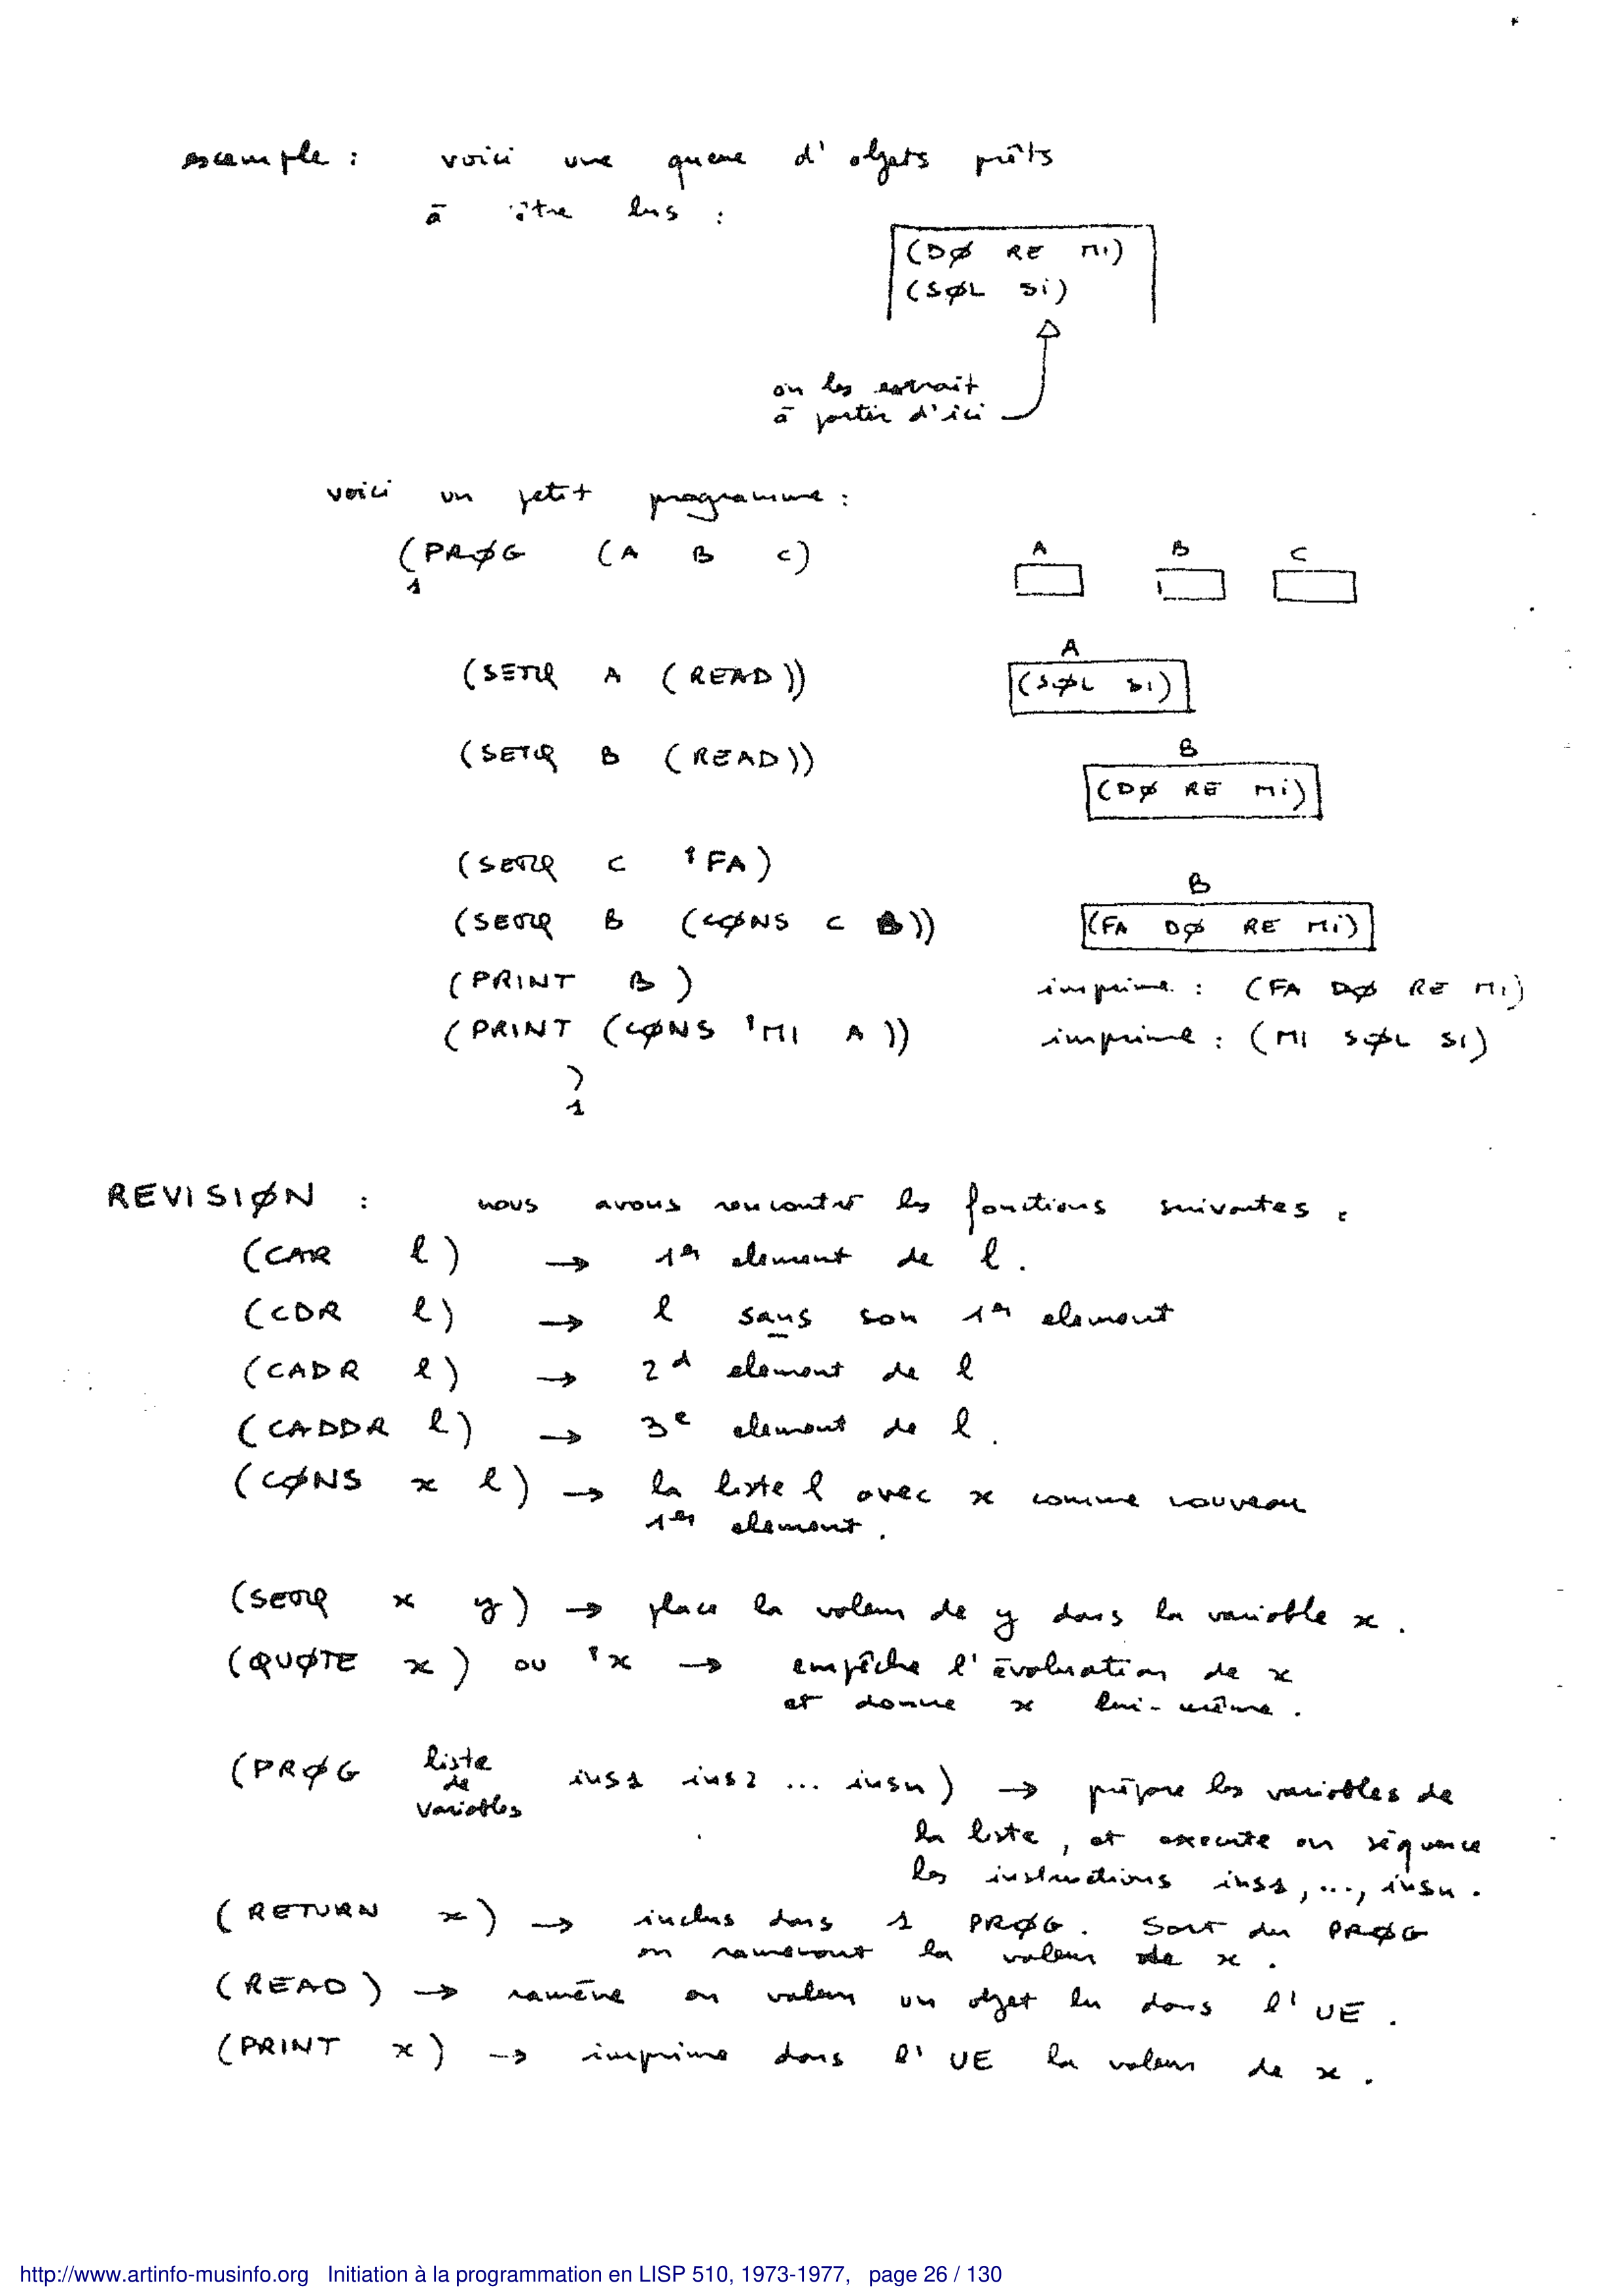 exemple : voici une queue d'objets prêts
à être lus :
(DØ RE MI)
(SØL Si)
on les extrait
à partir d'ici
voici un petit programme :
(PRØG (A B C)
1
A B C
(SETQ A (READ))
A
(SØL SI)
(SETQ B (READ))
B
(DØ RE Mi)
(SETQ C 'FA)
(SETQ B (CØNS C B))
B
(FA DØ RE Mi)
(PRINT B) imprime : (FA DØ RE MI)
(PRINT (CØNS 'MI A)) imprime : (MI SØL SI)
)
1
REVISIØN : nous avons rencontré les fonctions suivantes :
(CAR l) → 1er element de l.
(CDR l) → l sans son 1er element
(CADR l) → 2d element de l
(CADDR l) → 3e element de l.
(CØNS x l) → la liste l avec x comme nouveau
1er element.
(SETQ x y) → place la valeur de y dans la variable x.
(QUØTE x) ou 'x → empêche l'évaluation de x
et donne x lui-même.
(PRØG liste de variables ins1 ins2 ... insn) → prépare les variables de
la liste, et execute en séquence
les instructions ins1, ..., insn.
(RETURN x) → inclus dans 1 PRØG. Sort du PRØG
en ramenant la valeur de x.
(READ) → ramène en valeur un objet lu dans l'UE.
(PRINT x) → imprime dans l'UE la valeur de x.
http://www.artinfo-musinfo.org Initiation à la programmation en LISP 510, 1973-1977, page 26 / 130